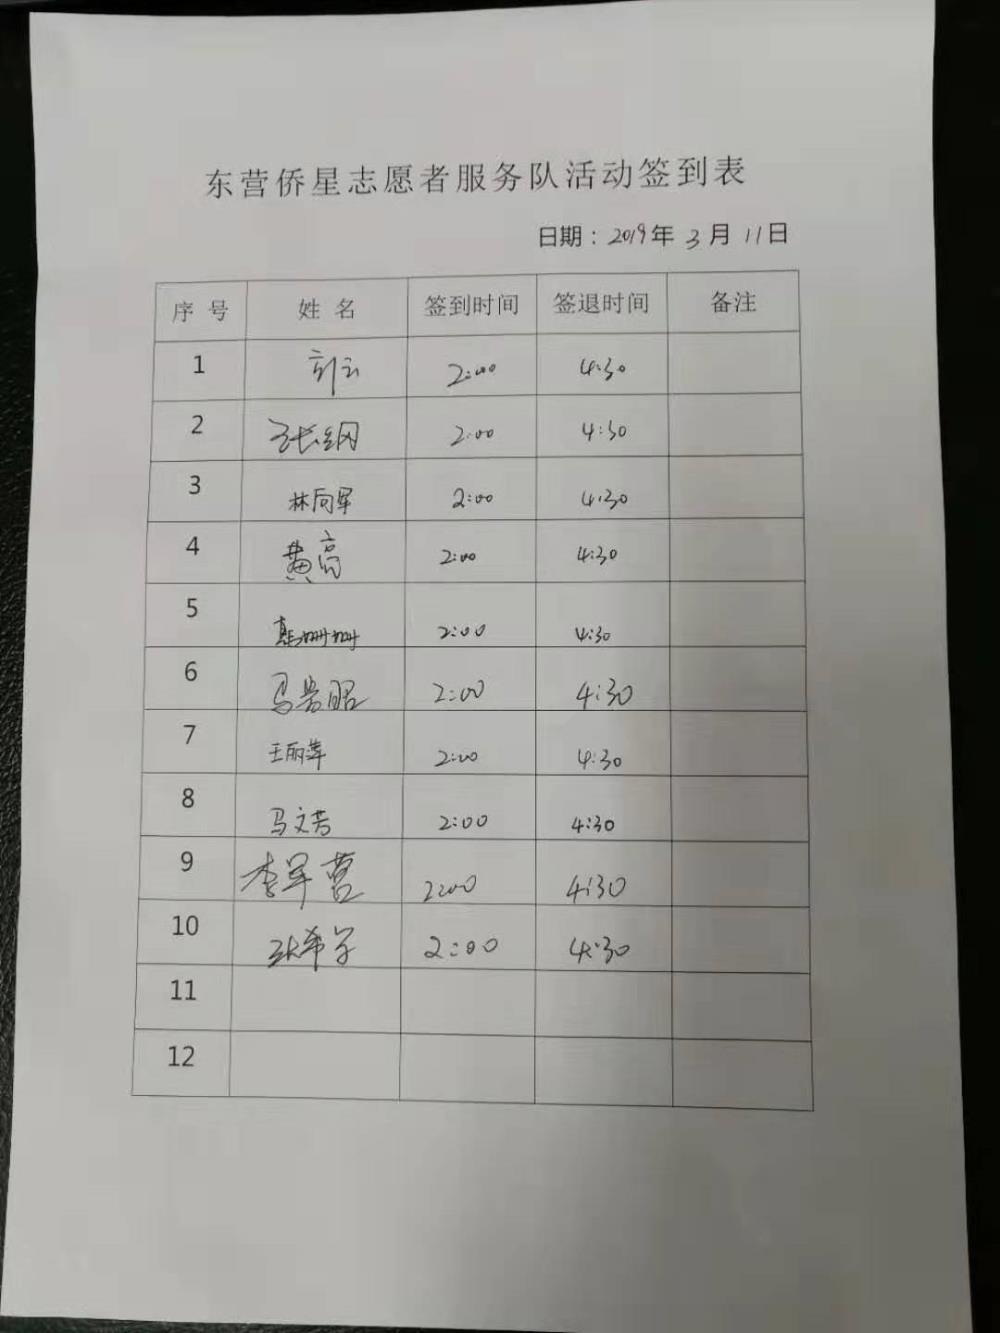 东营侨星志愿者服务队活动签到表
日期：2019年 3月 11日
序 号 姓 名 签到时间 签退时间 备注
1 刘云 2:00 4:30
2 张纲 2:00 4:30
3 林向军 2:00 4:30
4 黄亮 2:00 4:30
5 2:00 4:30
6 马岩昭 2:00 4:30
7 王丽萍 2:00 4:30
8 马文芳 2:00 4:30
9 李军营 2:00 4:30
10 张希学 2:00 4:30
11
12